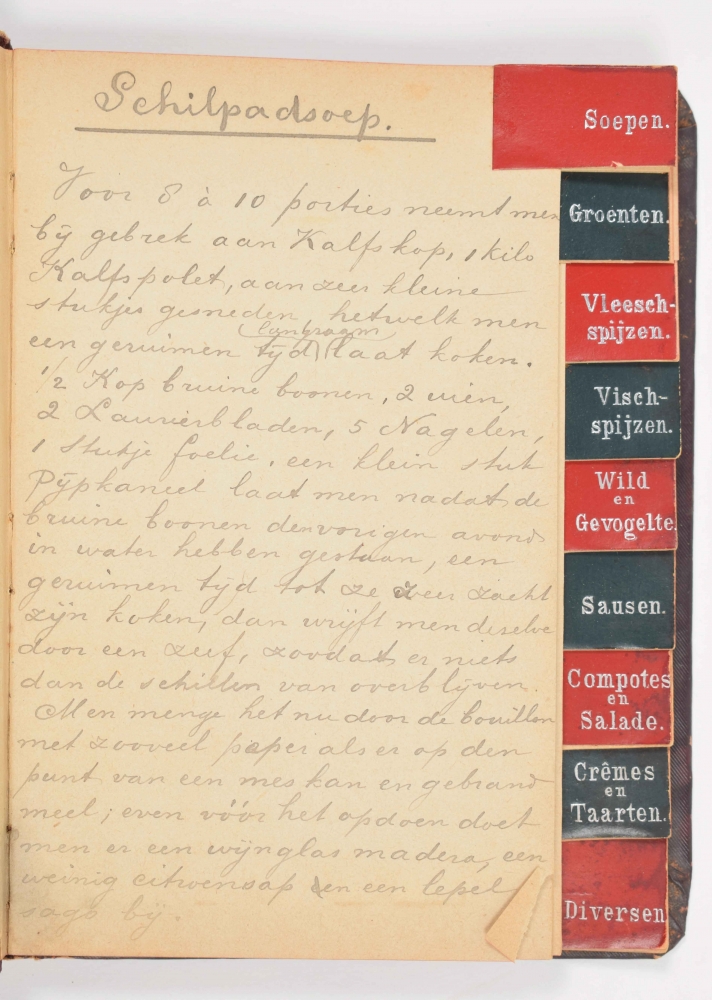 Schilpadsoep.
Voor 8 à 10 porties neemt men
bij gebrek aan Kalfskop, 1 kilo
Kalfspolet, aan zeer kleine
stukjes gesneden, hetwelk men
langzaam
een geruimen tijd laat koken.
1/2 Kop bruine boonen, 2 uien,
2 Laurierbladen, 5 Nagelen,
1 stukje foelie, een klein stuk
Pijpkaneel laat men nadat de
bruine boonen den vorigen avond
in water hebben gestaan, een
geruimen tijd tot ze zeer zacht
zijn koken, dan wrijft men deselve
door een zeef, zoodat er niets
dan de schillen van overblijven.
Men menge het nu door de bouillon
met zooveel peper als er op den
punt van een mes kan en gebrand
meel; even vóór het opdoen doet
men er een wijnglas madera, een
weinig citroensap en een lepel
sago bij.
Soepen.
Groenten.
Vleesch-
spijzen.
Visch-
spijzen.
Wild
en
Gevogelte.
Sausen.
Compotes
en
Salade.
Crêmes
en
Taarten.
Diversen